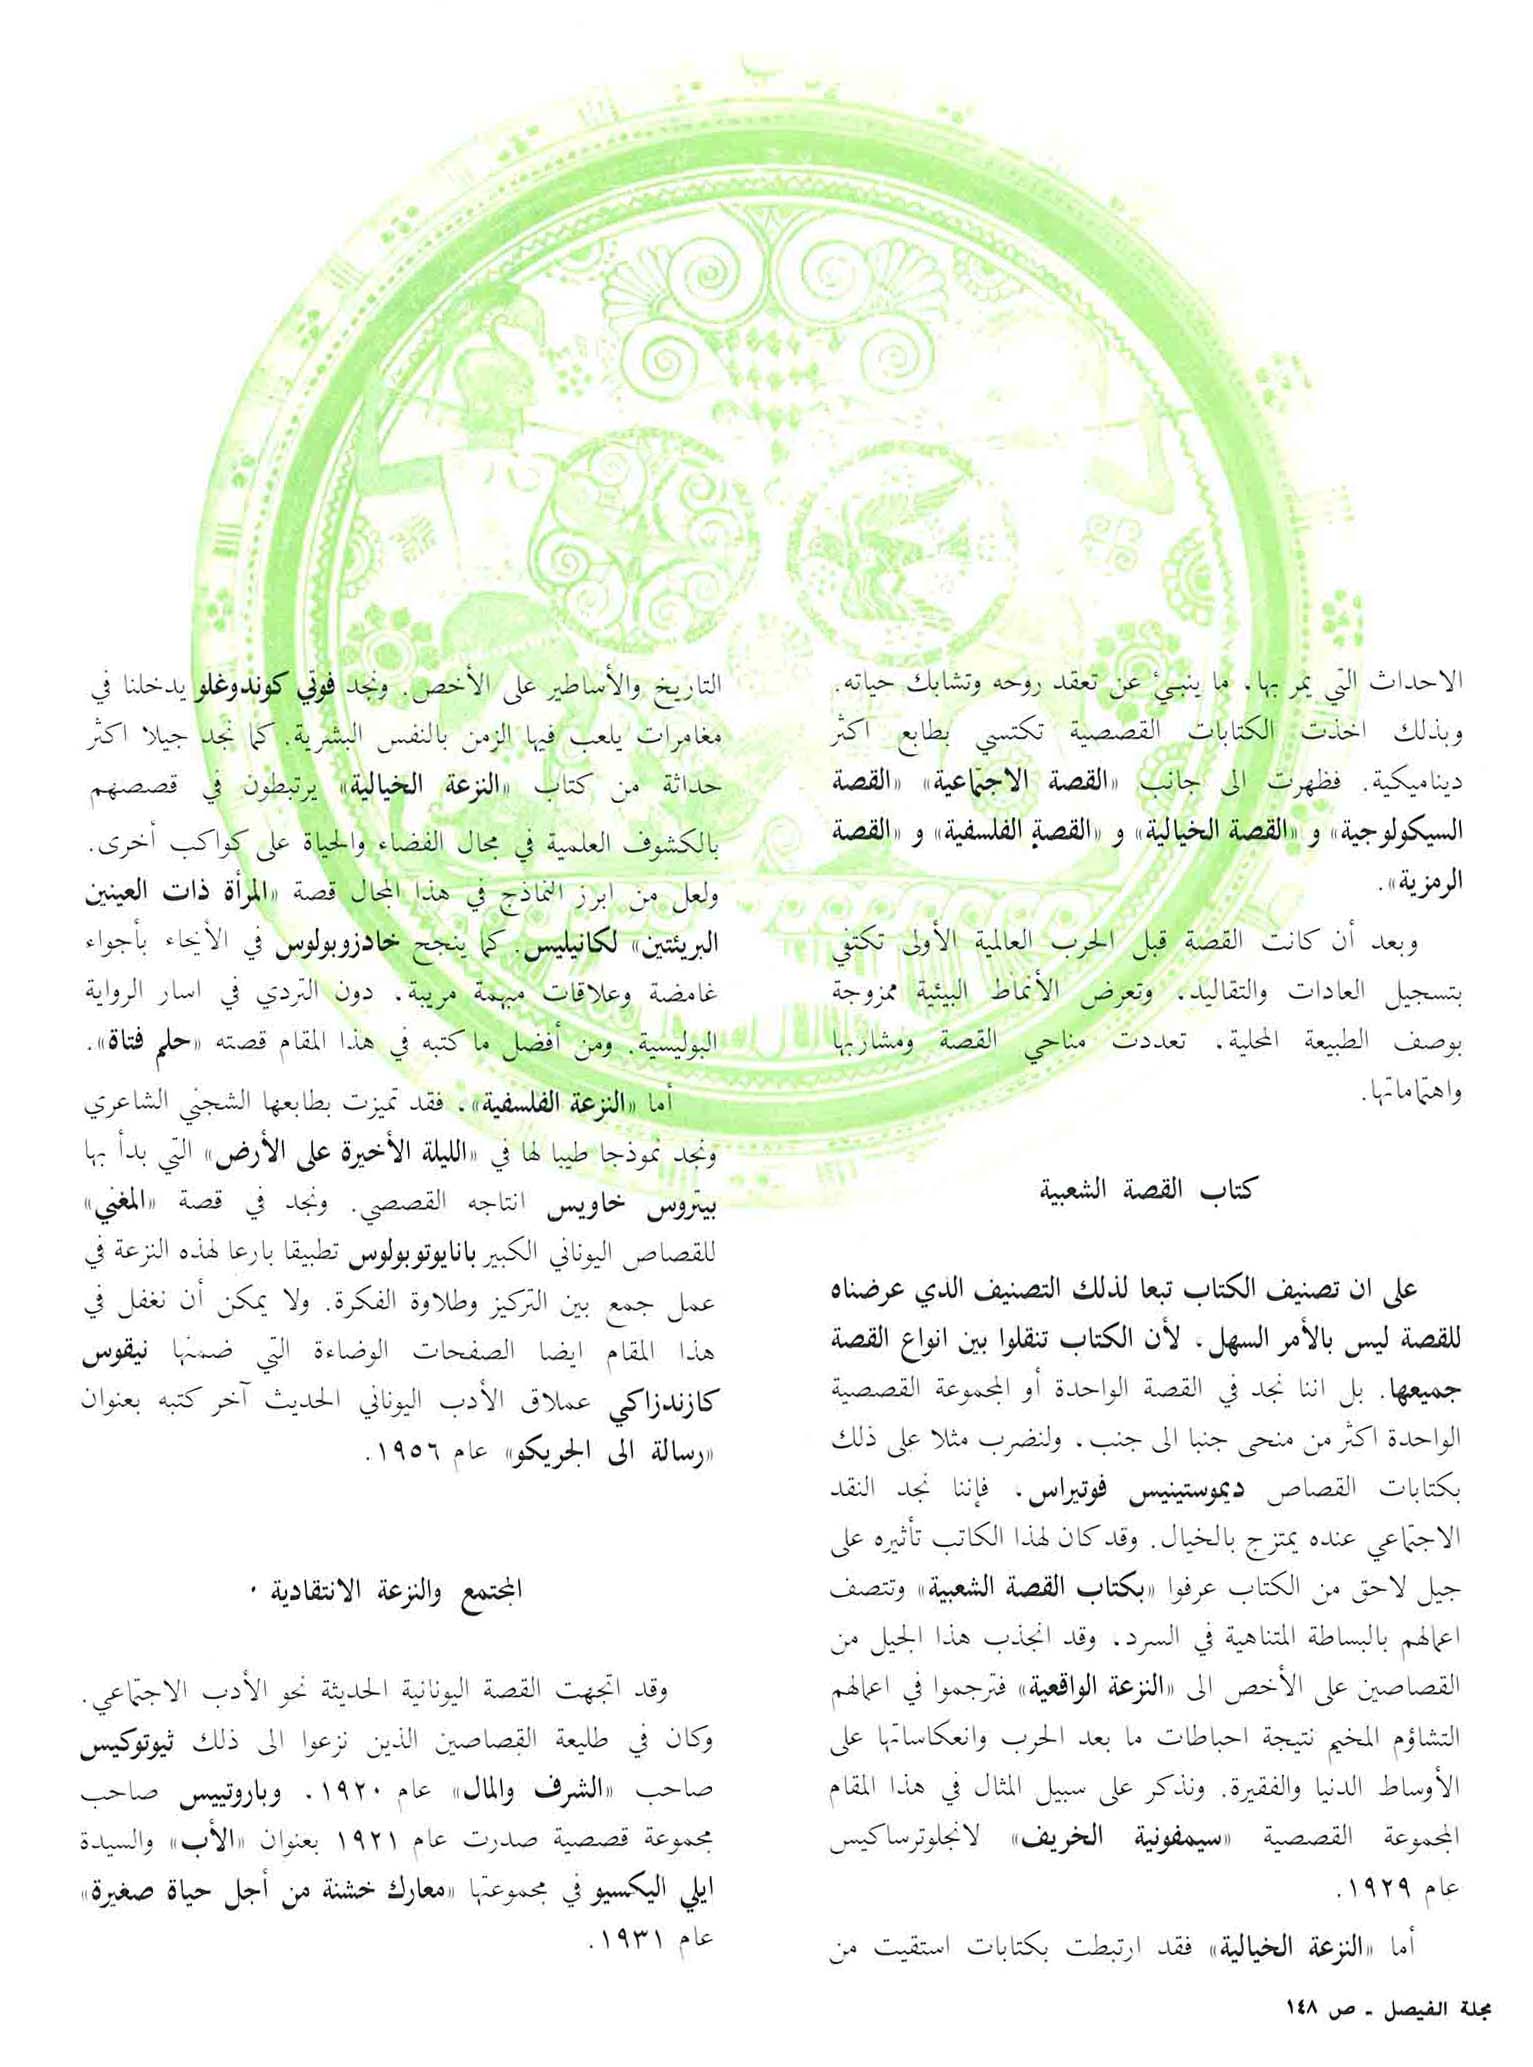 الاحداث التي يمر بها، ما ينبئ عن تعقد روحه وتشابك حياته.
وبذلك اخذت الكتابات القصصية تكتسي بطابع اكثر
ديناميكية. فظهرت الى جانب «القصة الاجتماعية» «القصة
السيكولوجية» و «القصة الخيالية» و «القصة الفلسفية» و «القصة
الرمزية».
وبعد أن كانت القصة قبل الحرب العالمية الأولى تكتفي
بتسجيل العادات والتقاليد، وتعرض الأنماط البيئية ممزوجة
بوصف الطبيعة المحلية، تعددت مناحي القصة ومشاربها
واهتماماتها.
كتاب القصة الشعبية
على ان تصنيف الكتاب تبعا لذلك التصنيف الذي عرضناه
للقصة ليس بالأمر السهل، لأن الكتاب تنقلوا بين انواع القصة
جميعها. بل اننا نجد في القصة الواحدة أو المجموعة القصصية
الواحدة اكثر من منحى جنبا الى جنب، ولنضرب مثلا على ذلك
بكتابات القصاص ديموستينيس فوتيراس، فإننا نجد النقد
الاجتماعي عنده يمتزج بالخيال. وقد كان لهذا الكاتب تأثيره على
جيل لاحق من الكتاب عرفوا «بكتاب القصة الشعبية» وتتصف
اعمالهم بالبساطة المتناهية في السرد، وقد انجذب هذا الجيل من
القصاصين على الأخص الى «النزعة الواقعية» فترجموا في اعمالهم
التشاؤم المخيم نتيجة احباطات ما بعد الحرب وانعكاساتها على
الأوساط الدنيا والفقيرة. ونذكر على سبيل المثال في هذا المقام
المجموعة القصصية «سيمفونية الخريف» لانجلوترساكيس
عام ١٩٢٩.
أما «النزعة الخيالية» فقد ارتبطت بكتابات استقيت من
التاريخ والأساطير على الأخص. ونجد فوتي كوندوغلو يدخلنا في
مغامرات يلعب فيها الزمن بالنفس البشرية. كما نجد جيلا اكثر
حداثة من كتاب «النزعة الخيالية» يرتبطون في قصصهم
بالكشوف العلمية في مجال الفضاء والحياة على كواكب أخرى.
ولعل من ابرز النماذج في هذا المجال قصة «المرأة ذات العينين
البريئتين» لكانيليس. كما ينجح خادزوبولوس في الأيحاء بأجواء
غامضة وعلاقات مبهمة مريبة، دون التردي في اسار الرواية
البوليسية. ومن أفضل ما كتبه في هذا المقام قصته «حلم فتاة».
أما «النزعة الفلسفية»، فقد تميزت بطابعها الشجني الشاعري
ونجد نموذجا طيبا لها في «الليلة الأخيرة على الأرض» التي بدأ بها
بيتروس خاويس انتاجه القصصي. ونجد في قصة «المغني»
للقصاص اليوناني الكبير بانايوتوبولوس تطبيقا بارعا لهذه النزعة في
عمل جمع بين التركيز وطلاوة الفكرة. ولا يمكن أن نغفل في
هذا المقام ايضا الصفحات الوضاءة التي ضمنها نيقوس
كازندزاكي عملاق الأدب اليوناني الحديث آخر كتبه بعنوان
«رسالة الى الجريكو» عام ١٩٥٦.
المجتمع والنزعة الانتقادية
وقد اتجهت القصة اليونانية الحديثة نحو الأدب الاجتماعي.
وكان في طليعة القصاصين الذين نزعوا الى ذلك ثيوتوكيس
صاحب «الشرف والمال» عام ١٩٢٠، وباروتييس صاحب
مجموعة قصصية صدرت عام ١٩٢١ بعنوان «الأب» والسيدة
ايلي اليكسيو في مجموعتها «معارك خشنة من أجل حياة صغيرة»
عام ١٩٣١.
مجلة الفيصل ـ ص ١٤٨